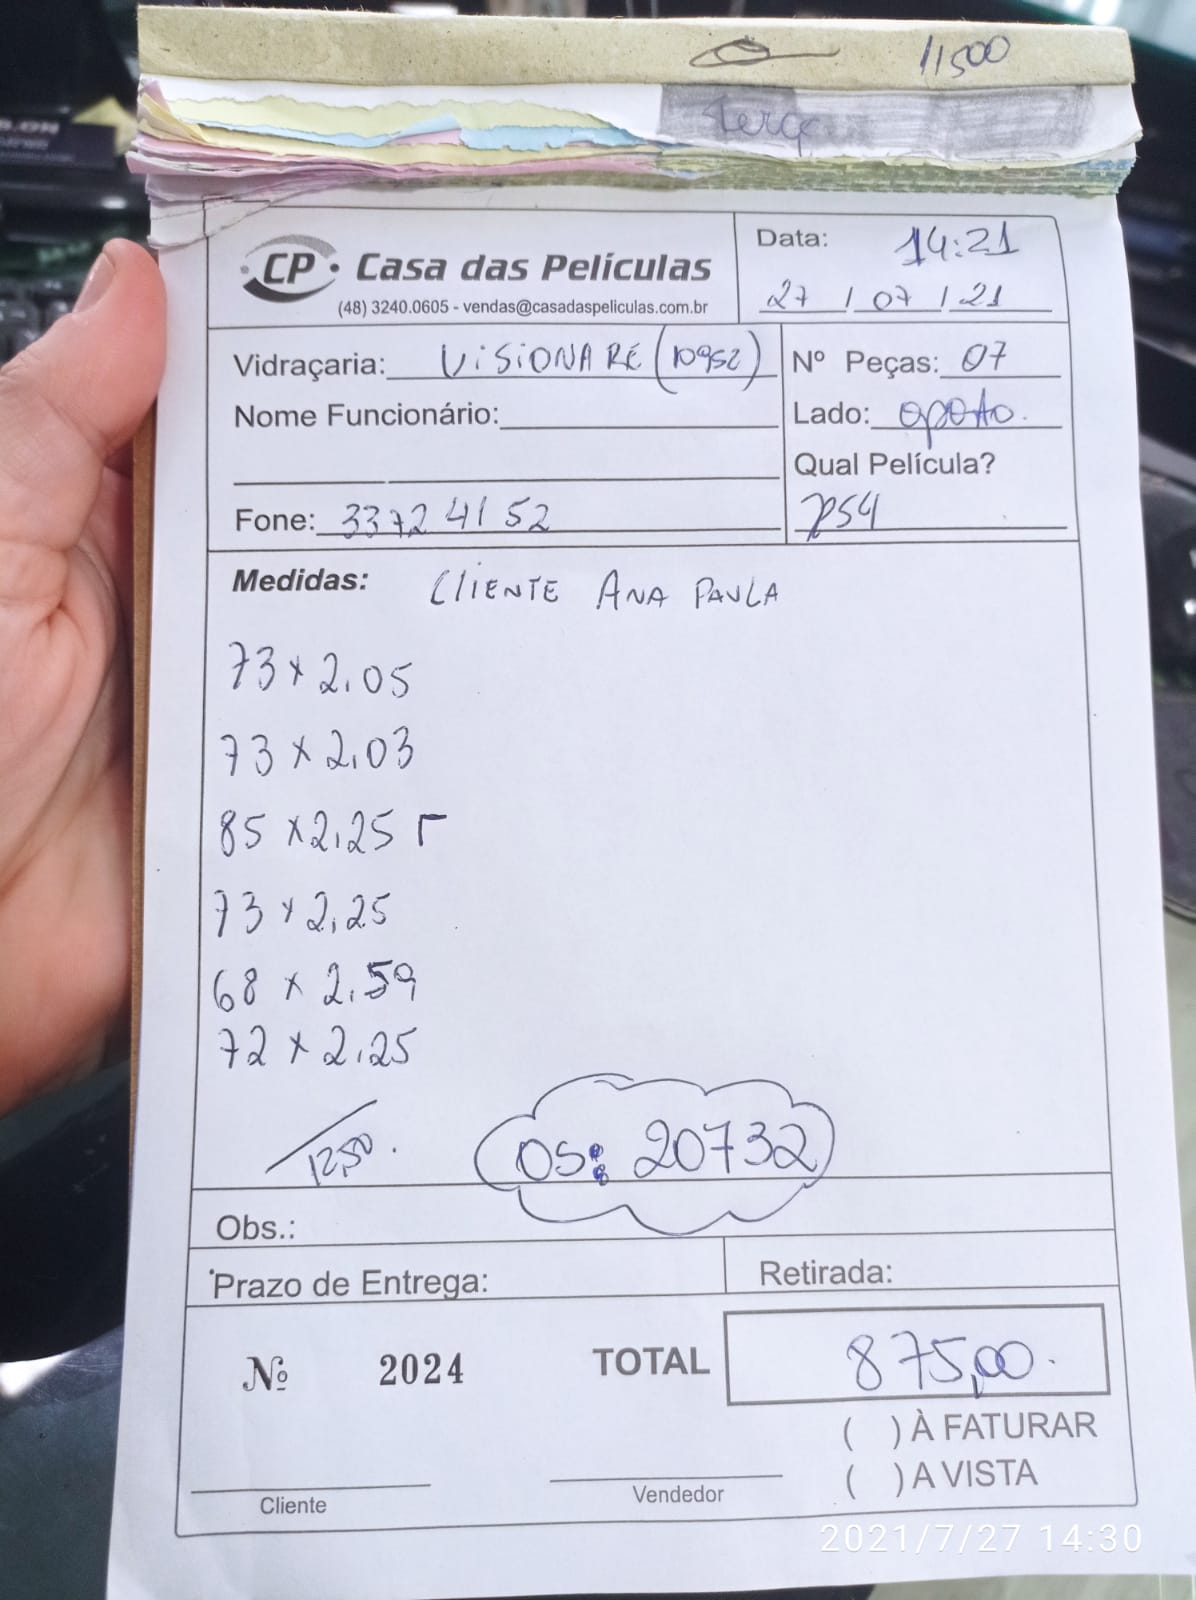 11500
terça
CP Casa das Películas
(48) 3240.0605 - vendas@casadaspeliculas.com.br
Data: 14:21
27 / 07 / 21
Vidraçaria: VISIONARE (10952)
Nº Peças: 07
Nome Funcionário:
Lado: oposto.
Qual Película?
Fone: 3372 4152
PS4
Medidas: CLIENTE ANA PAULA
73 x 2.05
73 x 2.03
85 x 2.25
73 x 2.25
68 x 2.59
72 x 2.25
12,50.
OS: 20732
Obs.:
Prazo de Entrega:
Retirada:
Nº 2024
TOTAL 875,00.
( ) À FATURAR
( ) A VISTA
Cliente
Vendedor
2021/7/27 14:30